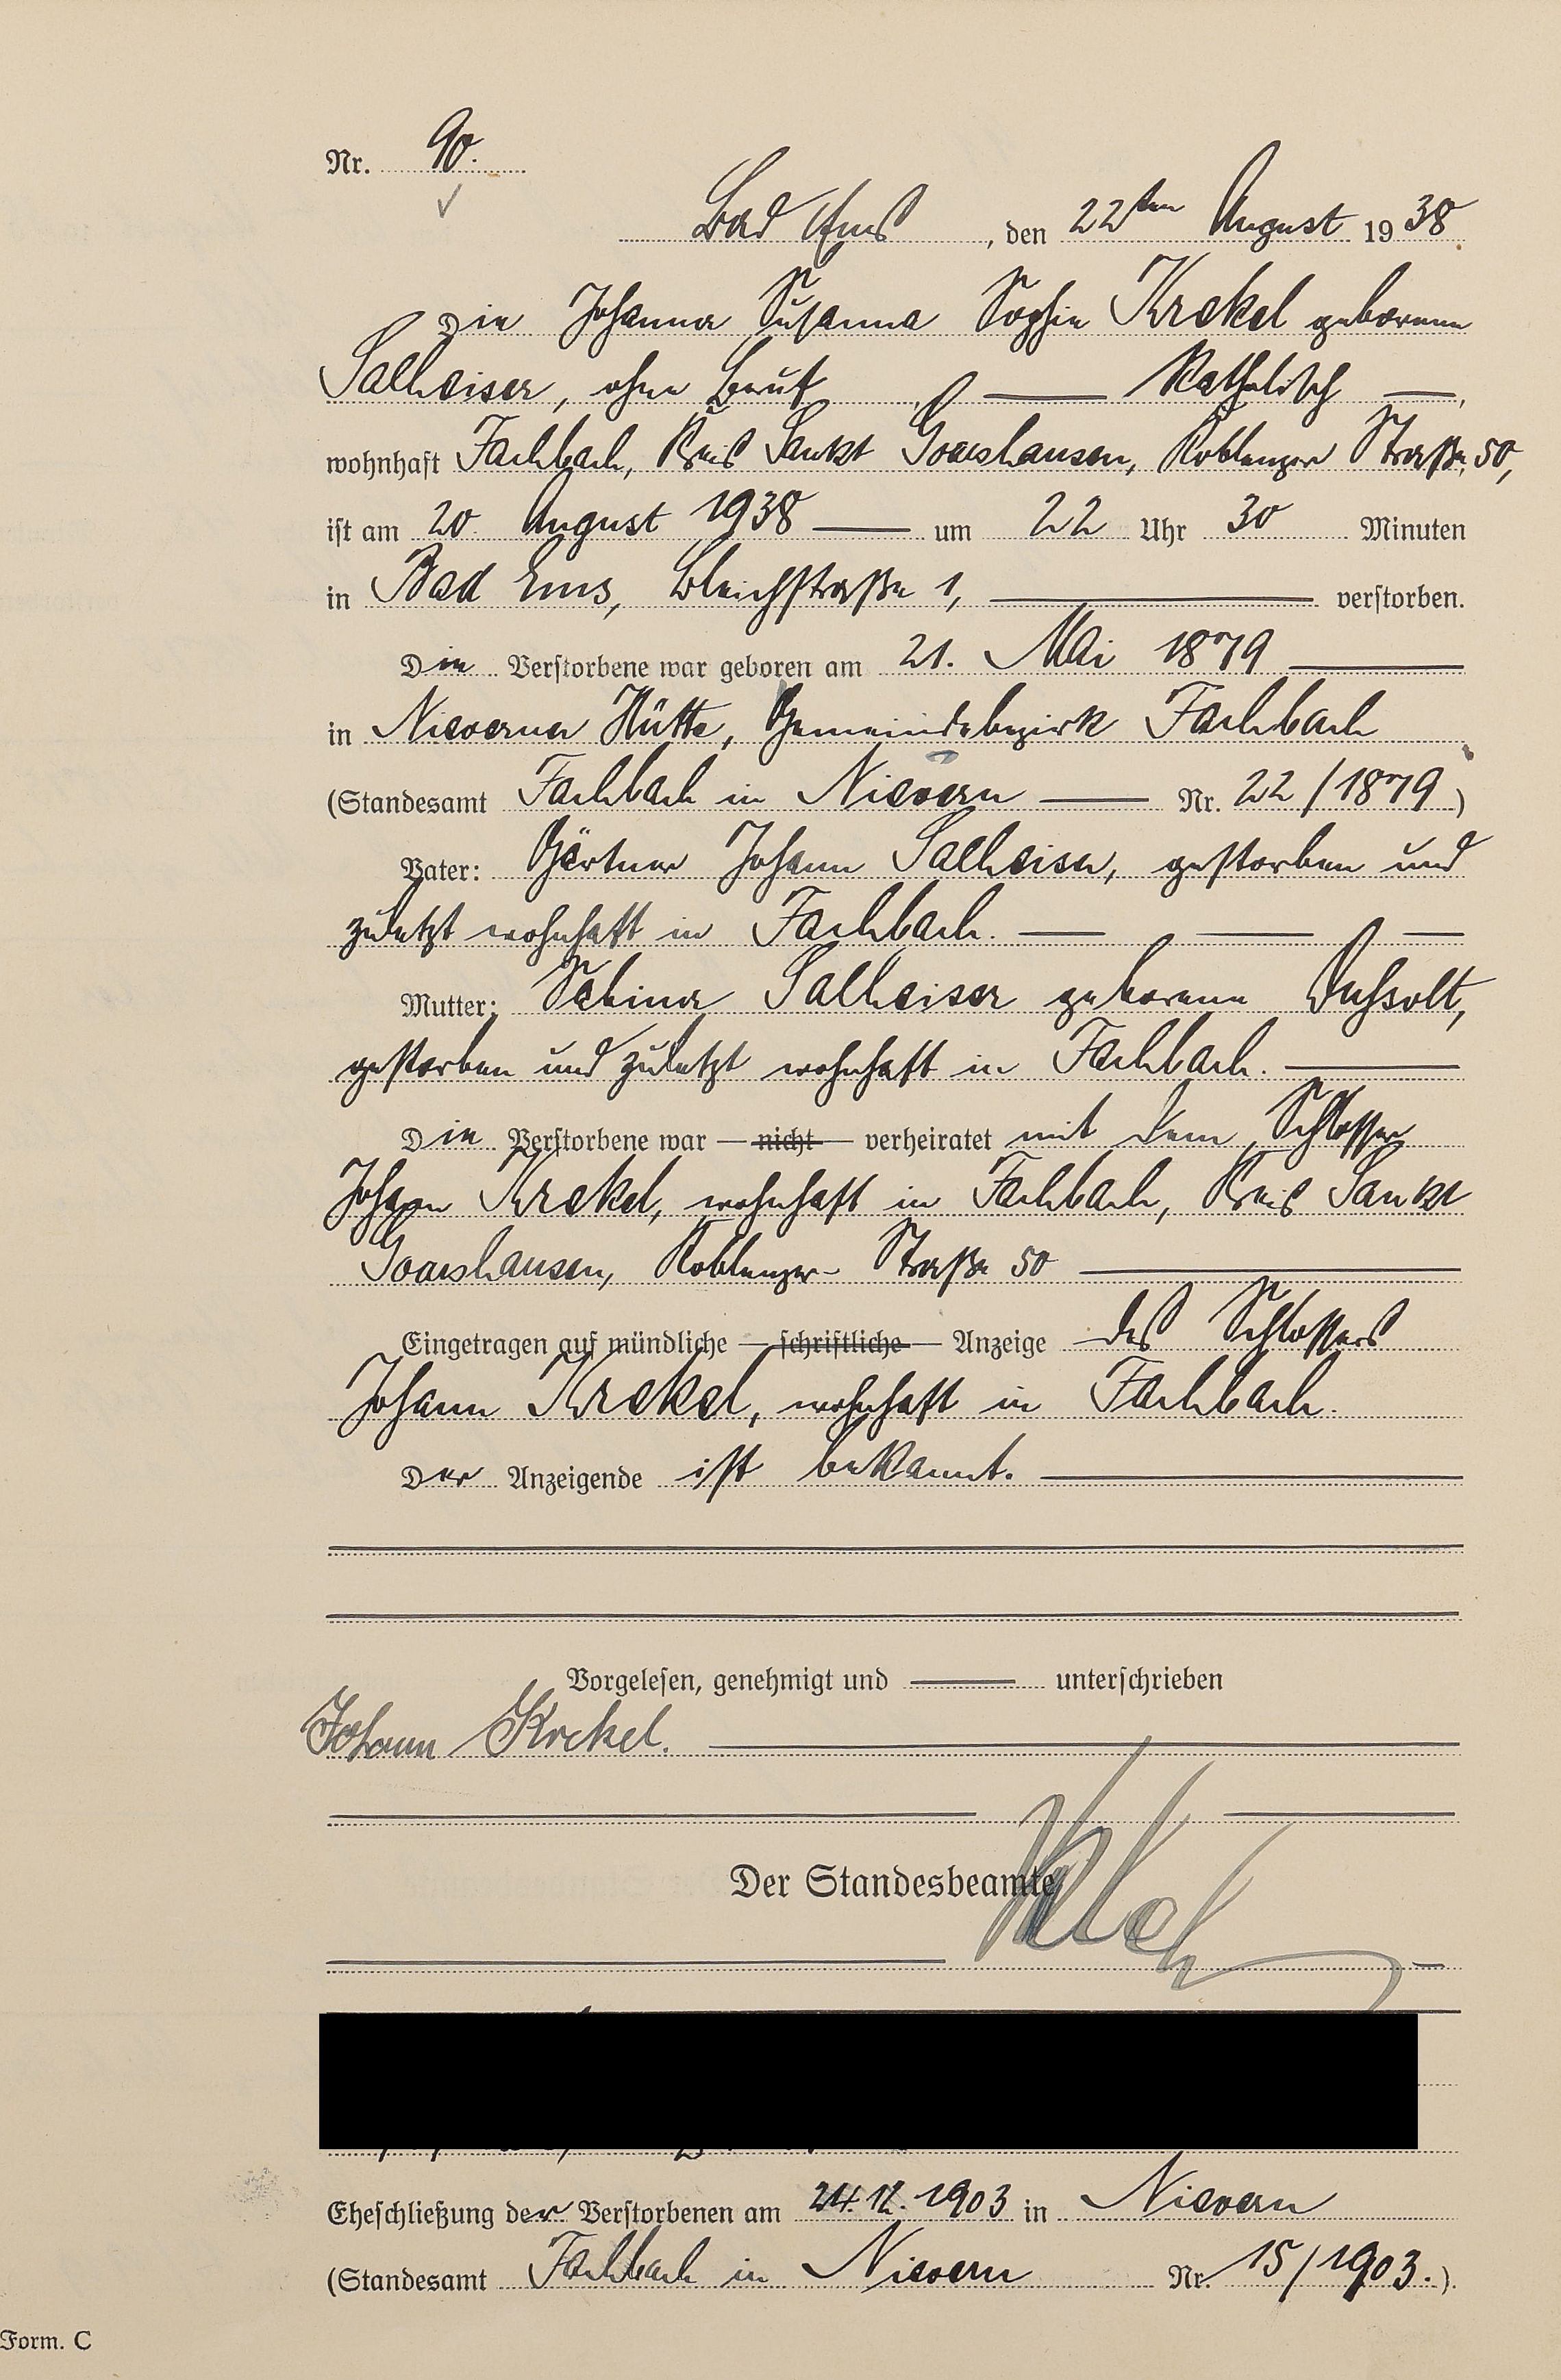 Nr. 90.
Bad Ems, den 22ten August 1938
Die Johanna Susanna Sophie Krekel geborene
Salheiser, ohne Beruf, — Katholisch —,
wohnhaft Fachbach, Kreis Sankt Goarshausen, Koblenzer Straße 50,
ist am 20. August 1938 — um 22 Uhr 30 Minuten
in Bad Ems, Bleichstraße 1, — verstorben.
Die Verstorbene war geboren am 21. Mai 1879 —
in Nieverner Hütte, Gemeindebezirk Fachbach
(Standesamt Fachbach in Nievern — Nr. 22/1879)
Vater: Gärtner Johann Salheiser, gestorben und
zuletzt wohnhaft in Fachbach. — — —
Mutter: Sabina Salheiser geborene
gestorben und zuletzt wohnhaft in Fachbach. —
Die Verstorbene war — nicht — verheiratet mit dem Schlosser
Johann Krekel, wohnhaft in Fachbach, Kreis Sankt
Goarshausen, Koblenzer Straße 50 —
Eingetragen auf mündliche — schriftliche — Anzeige des Schlossers
Johann Krekel, wohnhaft in Fachbach.
Der Anzeigende ist bekannt. —
Vorgelesen, genehmigt und — unterschrieben
Johann Krekel.
Der Standesbeamte
Eheschließung der Verstorbenen am 24.12.1903 in Nievern
(Standesamt Fachbach in Nievern Nr. 15/1903.)
Form. C